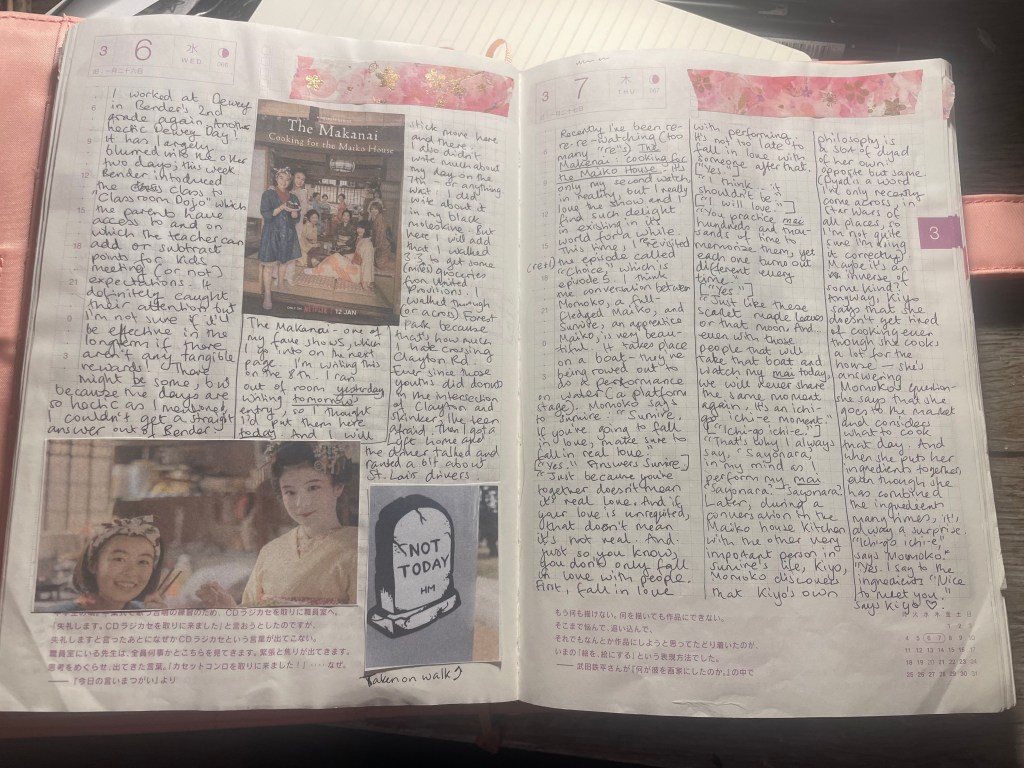 3 6 水
WED
I worked at Dewey
in Bender's 2nd
grade again. Another
hectic Dewey Day!
It has largely
blurred into the other
two days; this week
Bender introduced
the class to
"Classroom Dojo" which
the parents have
access to and on
which the teacher can
add or subtract
points for kids
meeting (or not)
expectations. It
definitely caught
their attention but
I'm not sure if it'll
be effective in the
longterm if there
aren't any tangible
rewards! There
might be some, but
because the days are
so hectic as I mentioned,
I couldn't get a straight
answer out of Bender.
The Makanai
Cooking for the Maiko House
NETFLIX 12 JAN
The Makanai - one of
my fave shows, which
I go into on the next
page. I'm writing this
on the 8th. I ran
out of room yesterday
writing tomorrow's
entry, so I thought
I'd put them here
today. And I will
stick more here
and there. I
also didn't
write much about
my day on the
7th - or anything
I did
write about it
in my black
moleskine. But
here I will add
that I walked
3.3 to get some
(miles) groceries
from United
Provisions. I
walked through
(or across) Forest
Park because
that's how much
I hate crossing
Clayton Rd.
Ever since those
youths did donuts
in the intersection
of Clayton and
Skinker I've been
afraid. Then I got a
Lyft home and
the driver talked and
ranted a bit about
St. Louis drivers.
NOT
TODAY
HM
Taken on walk
CDラジカセを取りに職員室へ。
「失礼します。CDラジカセを取りに来ました」と言おうとしたのですが、
失礼しますと言ったあとになぜかCDラジカセという言葉が出てこない。
職員室にいる先生は、全員何事かとこちらを見てきます。緊張と焦りが出てきます。
思考をめぐらせ、出てきた言葉。「カセットコンロを取りに来ました!」‥‥なぜ。
——『今日の言いまつがい』より
3 7 木
THU
Recently I've been re-
re-re-watching (too
many "re"s) The
Makanai: Cooking for
the Maiko House. It's
only my second watch
in reality, but I really
love the show and I
find such delight
in existing in its
world for a while.
This time, I revisited
the episode called
"Choice," which is
episode 5. I think
the conversation between
Momoko, a full-
fledged Maiko, and
Sumire, an apprentice
Maiko, is very beau-
tiful. It takes place
on a boat - they're
being rowed out to
do a performance
on water (a platform
stage). Momoko says
to Sumire "Sumire,
if you're going to fall
in love, make sure to
fall in real love."
["Yes." Answers Sumire.]
"Just because you're
together doesn't mean
it's real love. And if
your love is unrequited,
that doesn't mean
it's not real. And
just so you know,
you don't only fall
in love with people.
First, fall in love
with performing.
It's not too late to
fall in love with
someone after that.
"Yes."
"I think it
shouldn't be."
["I will love."]
"You practice mai
hundreds and thou-
sands of time to
memorize them, yet
each one turns out
different every
time."
["Yes."]
"Just like these
scarlet maple leaves
or that moon. And
even with those
people that will
take that boat and
watch my mai today,
we will never share
the same moment
again. It's an ichi-
go ichi-e moment."
["Ichi-go ichi-e."]
"That's why I always
say, "Sayonara,"
in my mind as I
perform my mai.
"Sayonara." "Sayonara."
Later, during a
conversation in the
Maiko house kitchen
with the other very
important person in
Sumire's life, Kiyo,
Momoko discovers
that Kiyo's own
philosophy is
a sort of dyad
of her own;
opposite but same.
(Dyad is a word
I've only recently
come across, in
Star Wars of
all places, so
I'm not quite
sure I'm using
it correctly.)
Maybe it's an
inverse of
some kind?
Anyway, Kiyo
says that she
doesn't get tired
of cooking even
though she cooks
a lot for the
house — she's
answering
Momoko's question-
she says that she
goes to the market
and considers
what to cook
that day. And
when she puts her
ingredients together,
even though she
has combined
the ingredients
many times, it's
always a surprise.
"Ichi-go ichi-e,"
says Momoko.
"Yes. I say to the
ingredients "Nice
to meet you."
Says Kiyo ♡.
3
もう何も描けない。何を描いても作品にできない。
そこまで悩んで、追い込んで、
それでもなんとか作品にしようと思ってたどり着いたのが、
いまの「絵を、額にする」という表現方法でした。
——武田鉄平さんが『何が彼を画家にしたのか。』の中で
月 火 水 木 金 土 日
1 2 3
4 5 6 7 8 9 10
11 12 13 14 15 16 17
18 19 20 21 22 23 24
25 26 27 28 29 30 31